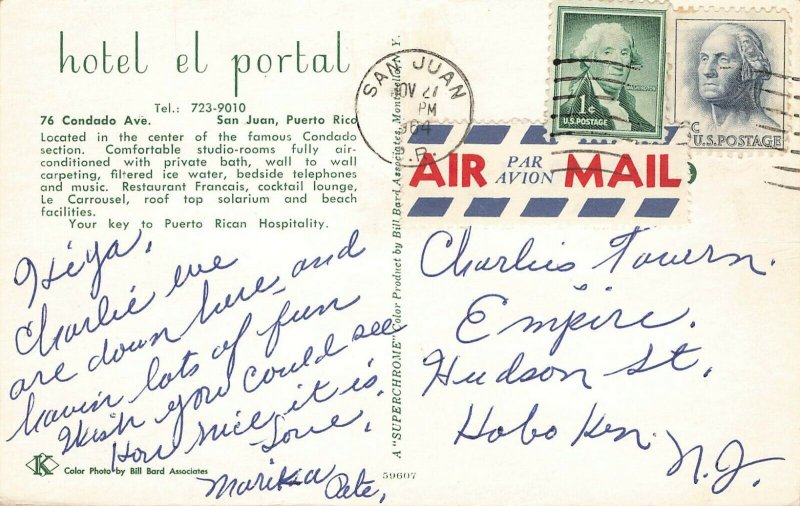 hotel el portal
Tel.: 723-9010
76 Condado Ave. San Juan, Puerto Rico
Located in the center of the famous Condado
section. Comfortable studio-rooms fully air-
conditioned with private bath, wall to wall
carpeting, filtered ice water, bedside telephones
and music. Restaurant Francais, cocktail lounge,
Le Carrousel, roof top solarium and beach
facilities.
Your key to Puerto Rican Hospitality.
Hiya,
Charlie we
are down here and
havin lots of fun
Wish you could see
How nice it is.
Love,
Marika Pete,
K
Color Photo by Bill Bard Associates
A "SUPERCHROME" Color Product by Bill Bard Associates, Monticello, N. Y.
59607
SAN JUAN
NOV 27
PM
1964
P.R.
WASHINGTON
1¢
U.S. POSTAGE
c
U.S. POSTAGE
AIR PAR AVION MAIL
Charlies Tavern.
Empire.
Hudson St.
Hobo Ken.
N.J.